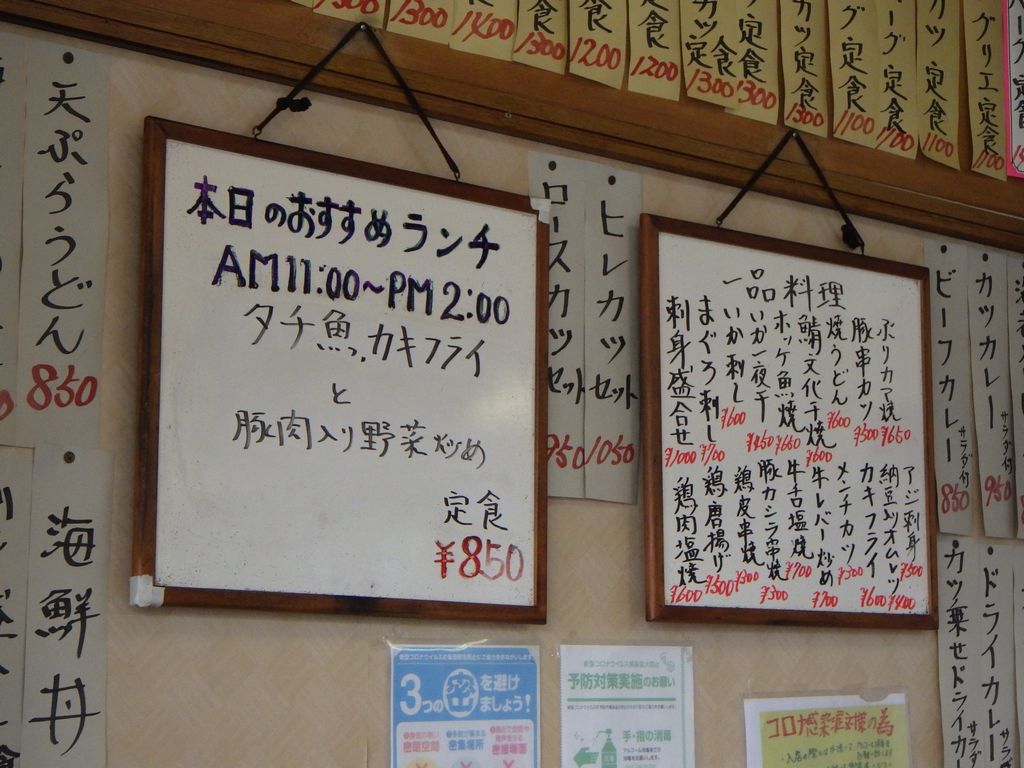 天ぷらうどん
850
海鮮丼
本日のおすすめランチ
AM11:00～PM2:00
タチ魚、カキフライ
と
豚肉入り野菜炒め
定食
¥850
ヒレカツセット
1050
ロースカツセット
950
一品料理
ぶりカマ焼 ¥650
豚串カツ ¥500
焼うどん ¥600
鯖文化干焼 ¥600
ホッケ魚焼 ¥660
いか一夜干
いか刺し ¥600
まぐろ刺し ¥700
刺身盛合せ ¥1000
アジ刺身 ¥500
納豆オムレツ ¥400
カキフライ ¥600
メンチカツ ¥500
牛レバー炒め ¥700
牛舌塩焼 ¥700
豚カシラ串焼 ¥300
鶏皮串焼 ¥300
鶏唐揚げ ¥500
鶏肉塩焼 ¥600
カツカレー
サラダ付
950
ビーフカレー
サラダ付
850
ドライカレー
カツ乗せドライカ
グリエ定食
1100
1100
グ定食
1100
カツ定食
1300
定食
1300
カツ定食
1300
定食
1200
食
1200
1300
1400
1300
1300
3つの
を避け
ましょう!
密閉空間
密集場所
密接場面
予防対策実施のお願い
手・指の消毒